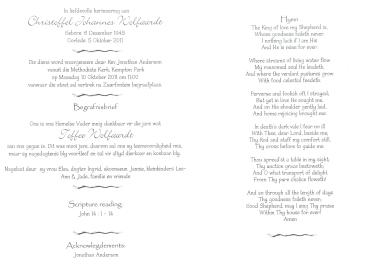 In liefdevolle herinnering aan
Christoffel Johannes Wolfaardt
Gebore 9 Desember 1945
Oorlede 5 Oktober 2011
Die diens word waargeneem deur Rev Jonathan Anderson
vanuit die Methodiste Kerk, Kempton Park
op Maandag 10 Oktober 2011 om 11:00
vanwaar die stoet sal vertrek na Zuurfontein begrafplaas.
Begrafnisbrief
Ons is ons Hemelse Vader innig dankbaar vir die jare wat
Stoffee Wolfaardt
aan ons gegun is. Dit was mooi jare, daarom sal ons my teenwoordigheid mis,
maar sy nagedagtenis bly voortleef en sal vir altyd dierbaar en kosbaar bly.
Nagelaat deur sy vrou Elna, dogter Ingrid, skoonseun Jannie, kleinkinders Lee-
Ann & Jade, familie en vriende
Scripture reading
John 14 : 1 - 14
Acknowledgements
Jonathan Anderson
Hymn
The King of love my Shepherd is,
Whose goodness faileth never;
I nothing lack if I am His
And He is mine for ever.
Where streams of living water flow
My ransomed soul He leadeth,
And where the verdant pastures grow
With food celestial feedeth.
Perverse and foolish oft I strayed,
But yet in love He sought me,
And on His shoulder gently laid,
And home rejoicing brought me.
In death's dark vale I fear no ill
With Thee, dear Lord, beside me,
Thy Rod and staff my comfort still,
Thy cross before to guide me.
Thou spread'st a table in my sight,
Thy unction grace bestoweth;
And O what transport of delight
From Thy pure chalice floweth!
And so through all the length of days
Thy goodness faileth never:
Good Shepherd, may I sing Thy praise
Within Thy house for ever!
Amen